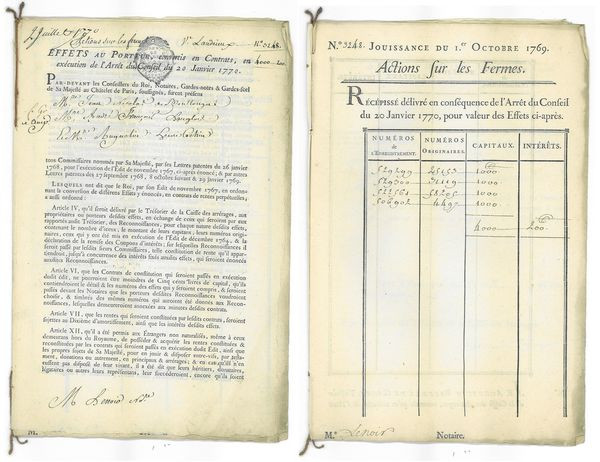 2 Juillet 1770
Actions sur les fermes
N.° 3248.
EFFETS AU PORTEUR, convertis en Contrats, en
exécution de l'Arrêt du Conseil du 20 Janvier 1770.
4000
PAR-DEVANT les Conseillers du Roi, Notaires, Gardes-notes & Gardes-scel
de Sa Majesté au Châtelet de Paris, soussignés, furent présens
TOUS Commissaires nommés par Sa Majesté, par ses Lettres patentes du 26 janvier
1768, pour l'exécution de l'Édit de novembre 1767, ci-après énoncé; & par autres
Lettres patentes des 17 septembre 1768, 8 octobre suivant & 29 janvier 1769.
LESQUELS ont dit que le Roi, par son Édit de novembre 1767, en ordon-
nant la conversion de différens Effets y énoncés, en contrats de rentes perpétuelles,
a aussi ordonné :
Article IV, qu'il seroit délivré par le Trésorier de la Caisse des arrérages, aux
propriétaires ou porteurs desdits effets, en échange de ceux qui seroient par eux
rapportés audit Trésorier, des Reconnoissances, pour chaque nature desdits effets,
contenant le nombre d'iceux, le montant de leurs capitaux, leurs numéros origi-
naires, ceux qui y ont été mis en exécution de l'Édit de décembre 1764, & la
déclaration de la remise des Coupons d'intérêts; sur lesquelles Reconnoissances il
seroit passé par lesdits sieurs Commissaires, telle constitution de rente qu'il appar-
tiendroit, jusqu'à concurrence des intérêts fruits annuels effets, qui seroient énoncés
auxdites Reconnoissances.
Article VI, que les Contrats de constitution qui seroient passés en exécution
dudit édit, ne pourroient être moindres de Cinq cents livres de capital, qu'ils
contiendroient le détail & les numéros des effets qui y seroient compris, & seroient
passés devant les Notaires que les porteurs desdites Reconnoissances voudroient
choisir, & timbrés des mêmes numéros qui auroient été donnés aux Recon-
noissances, lesquelles demeureroient annexées aux minutes desdits contrats.
Article VII, que les rentes qui seroient constituées par lesdits contrats, seroient
sujettes au Dixième d'amortissement, ainsi que les intérêts desdits effets.
Article XII, qu'il a été permis aux Étrangers non naturalisés, même à ceux
demeurans hors du Royaume, de posséder & acquérir les rentes constituées &
reconstituées par les contrats qui seroient passés en exécution dudit Édit, ainsi que
les propres sujets de Sa Majesté, pour en jouir & disposer entre-vifs, par testa-
ment, donations ou autrement, en principaux & arrérages; & en cas qu'ils n'en
eussent pas disposé de leur vivant, il a été dit que leurs héritiers, donataires,
légataires ou autres leurs représentans, leur succéderoient, encore qu'ils soient
M Lenoir N.re
N.° 3248. JOUISSANCE DU 1.er OCTOBRE 1769.
Actions sur les Fermes.
RÉCÉPISSÉ délivré en conséquence de l'Arrêt du Conseil
du 20 Janvier 1770, pour valeur des Effets ci-après.
NUMÉROS de l'ENREGISTREMENT. NUMÉROS ORIGINAIRES. CAPITAUX. INTÉRÊTS.
1000
1000
1000
1000
4000 200
M.e Lenoir Notaire.